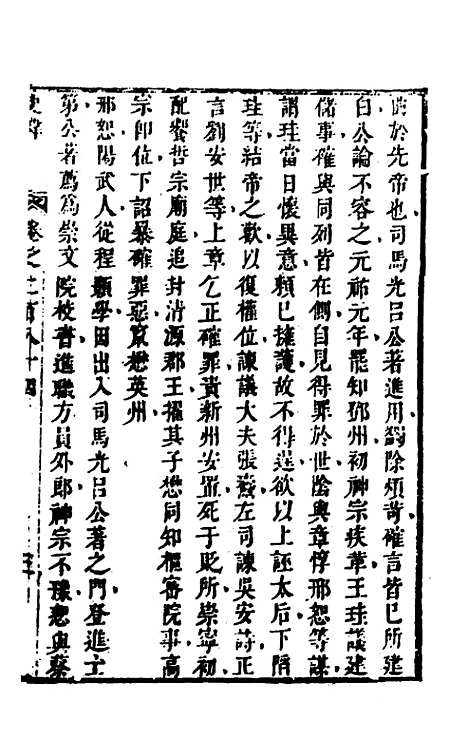 於先帝也司馬光呂公著進用蠲除煩苛確言皆已所建
白公論不容之元祐元年罷知鄧州初神宗疾革王珪議建
儲事確與同列皆在側自見得罪於世陰與章惇邢恕等謀
謂珪當日懷異意賴已擁護故不得逞欲以上誣太后下陷
珪等結帝之歡以復權位諫議大夫張燾左司諫吳安詩正
言劉安世等上章乞正確罪責新州安置死于貶所崇寧初
配饗哲宗廟庭追封清源郡王擢其子懋同知樞密院事高
宗卽位下詔暴確罪惡竄懋英州
邢恕陽武人從程顥學因出入司馬光呂公著之門登進士
第公著薦爲崇文院校書進職方員外郎神宗不豫恕與蔡
史緯 卷之二百八十四